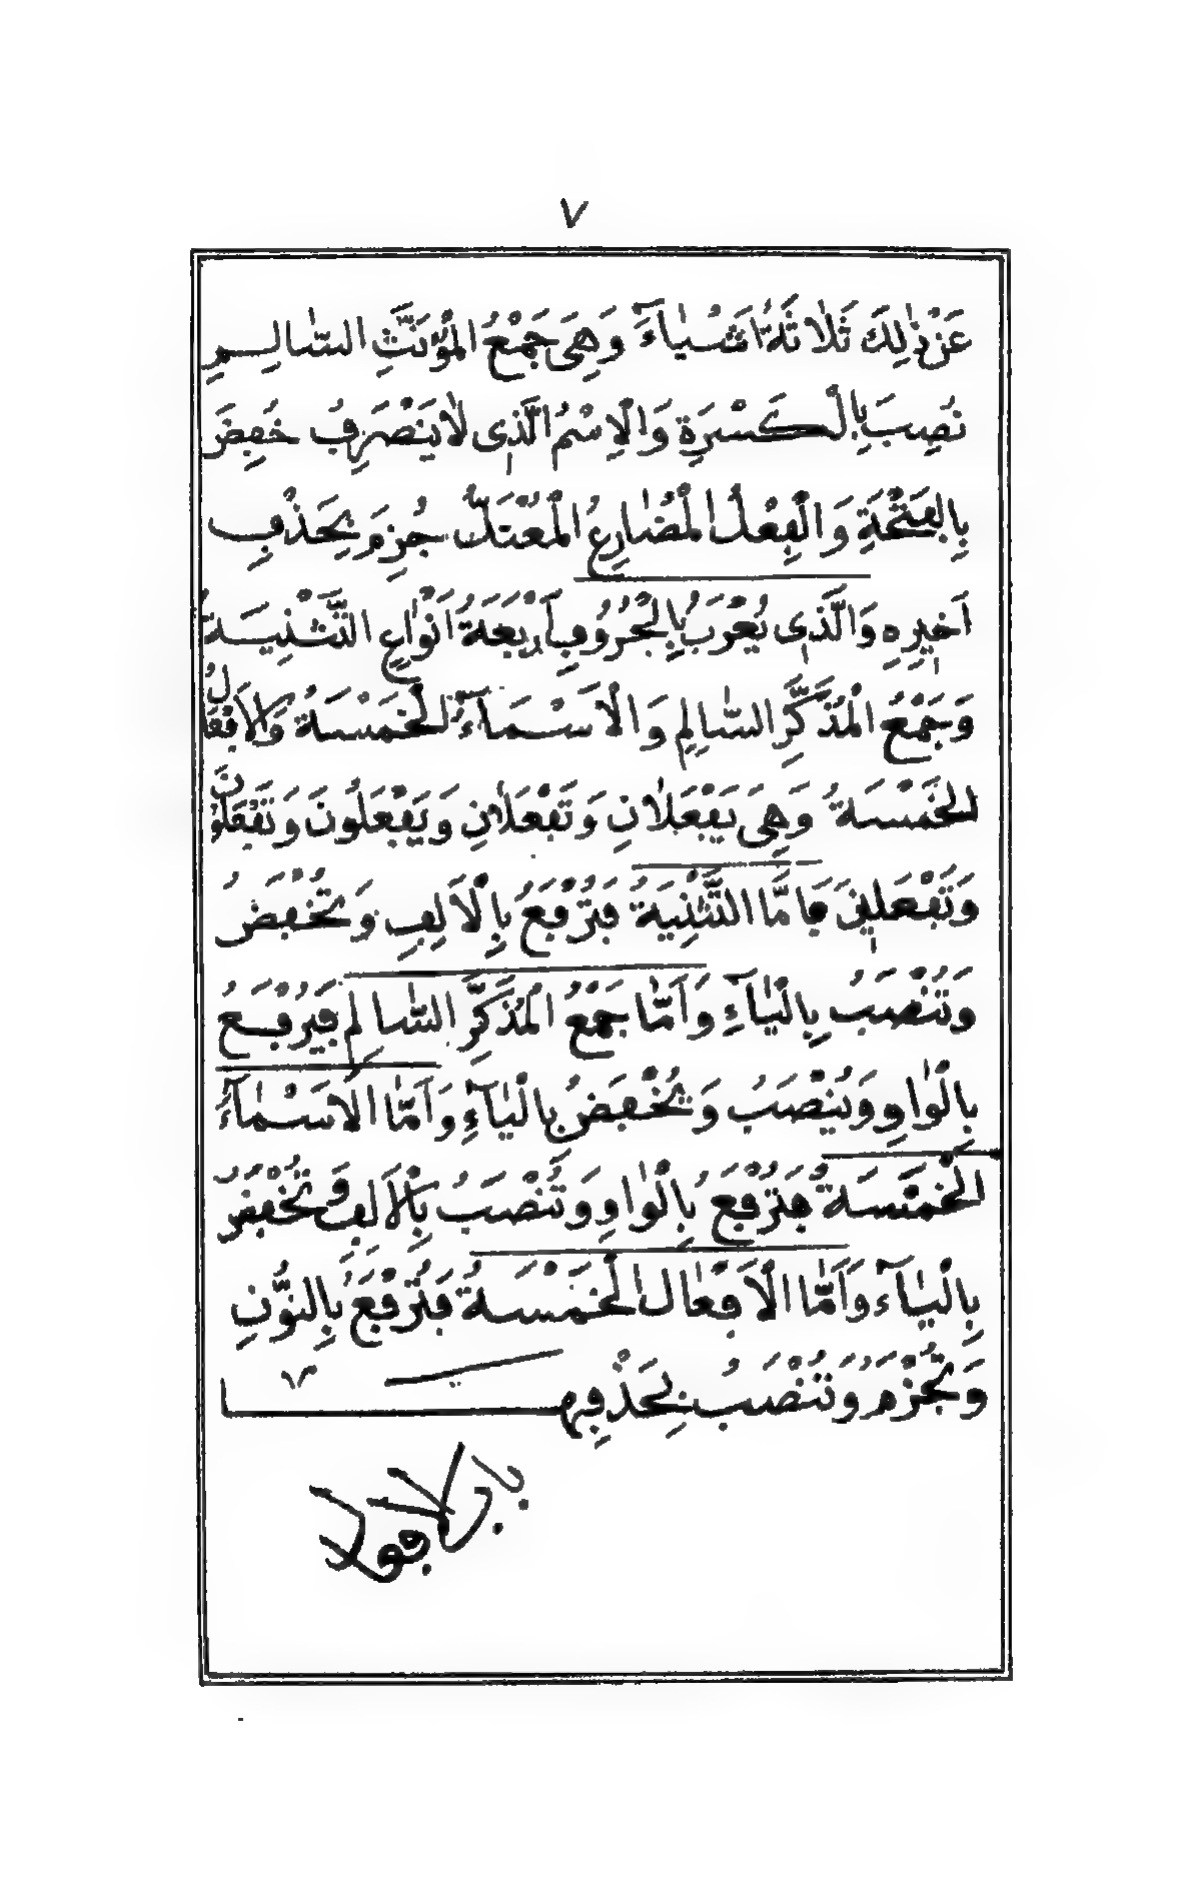 ٧
عَنْ ذٰلِكَ ثَلٰاثَةُ اَشْيٰاءَ وَهِىَ جَمْعُ الْمُؤَنَّثِ السّٰالِمِ
نُصِبَ بِالْكَسْرَةِ وَالْاِسْمُ الَّذِى لٰا يَنْصَرِفُ خُفِضَ
بِالْفَتْحَةِ وَالْفِعْلُ الْمُضٰارِعُ الْمُعْتَلُّ جُزِمَ بِحَذْفِ
اَخِيرِهِ وَالَّذِى يُعْرَبُ بِالْحُرُوفِ اَرْبَعَةُ اَنْوٰاعٍ التَّثْنِيَةُ
وَجَمْعُ الْمُذَكَّرِ السّٰالِمِ وَالْاَسْمَآءُ الْخَمْسَةُ وَالْاَفْعَالُ
الْخَمْسَةُ وَهِىَ يَفْعَلٰانِ وَتَفْعَلٰانِ وَيَفْعَلُونَ وَتَفْعَلُونَ
وَتَفْعَلِينَ فَاَمَّا التَّثْنِيَةُ فَتُرْفَعُ بِالْاَلِفِ وَتُخْفَضُ
وَتُنْصَبُ بِالْيٰآءِ وَاَمّٰا جَمْعُ الْمُذَكَّرِ السّٰالِمِ فَيُرْفَعُ
بِالْوٰاوِ وَيُنْصَبُ وَيُخْفَضُ بِالْيٰآءِ وَاَمّٰا الْاَسْمٰآءُ
الْخَمْسَةُ فَتُرْفَعُ بِالْوٰاوِ وَتُنْصَبُ بِالْاَلِفِ وَتُخْفَضُ
بِالْيٰآءِ وَاَمّٰا الْاَفْعٰالُ الْخَمْسَةُ فَتُرْفَعُ بِالنُّونِ
وَتُجْزَمُ وَتُنْصَبُ بِحَذْفِهَا
باب الافعال